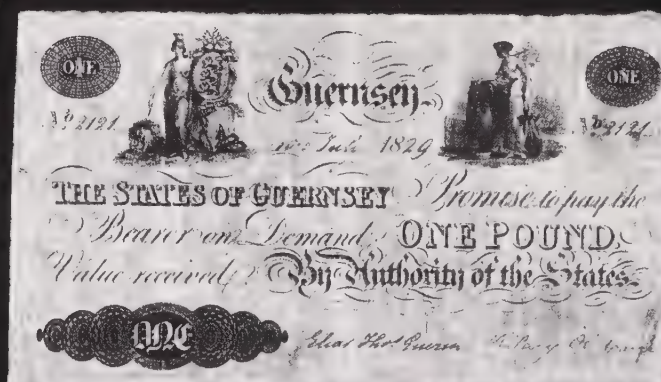 ONE ONE
Guernsey.
No 2121. No 2121.
July 1829
THE STATES OF GUERNSEY Promise to pay the
Bearer on Demand, ONE POUND.
Value received, By Authority of the States.
ONE
Elias Thos Guerin